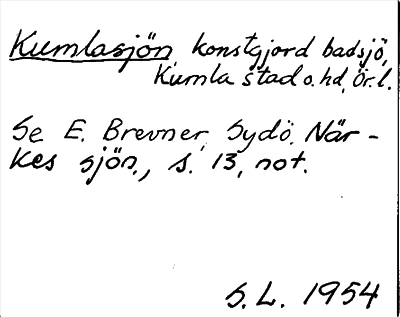 Kumlasjön, konstgjord badsjö,
Kumla stad o. hd, Ör. l.
Se E. Brevner, Sydö. När-
kes sjön., s. 13, not.
S. L. 1954